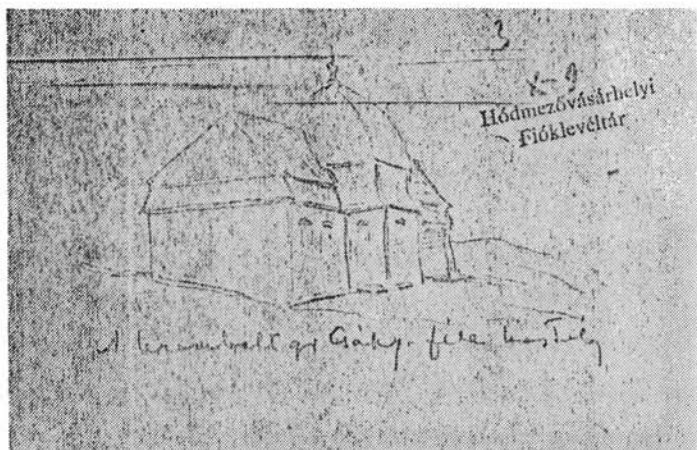 3
X-9
Hódmezővásárhelyi
Fióklevéltár
A gr Csáky-féle kastély